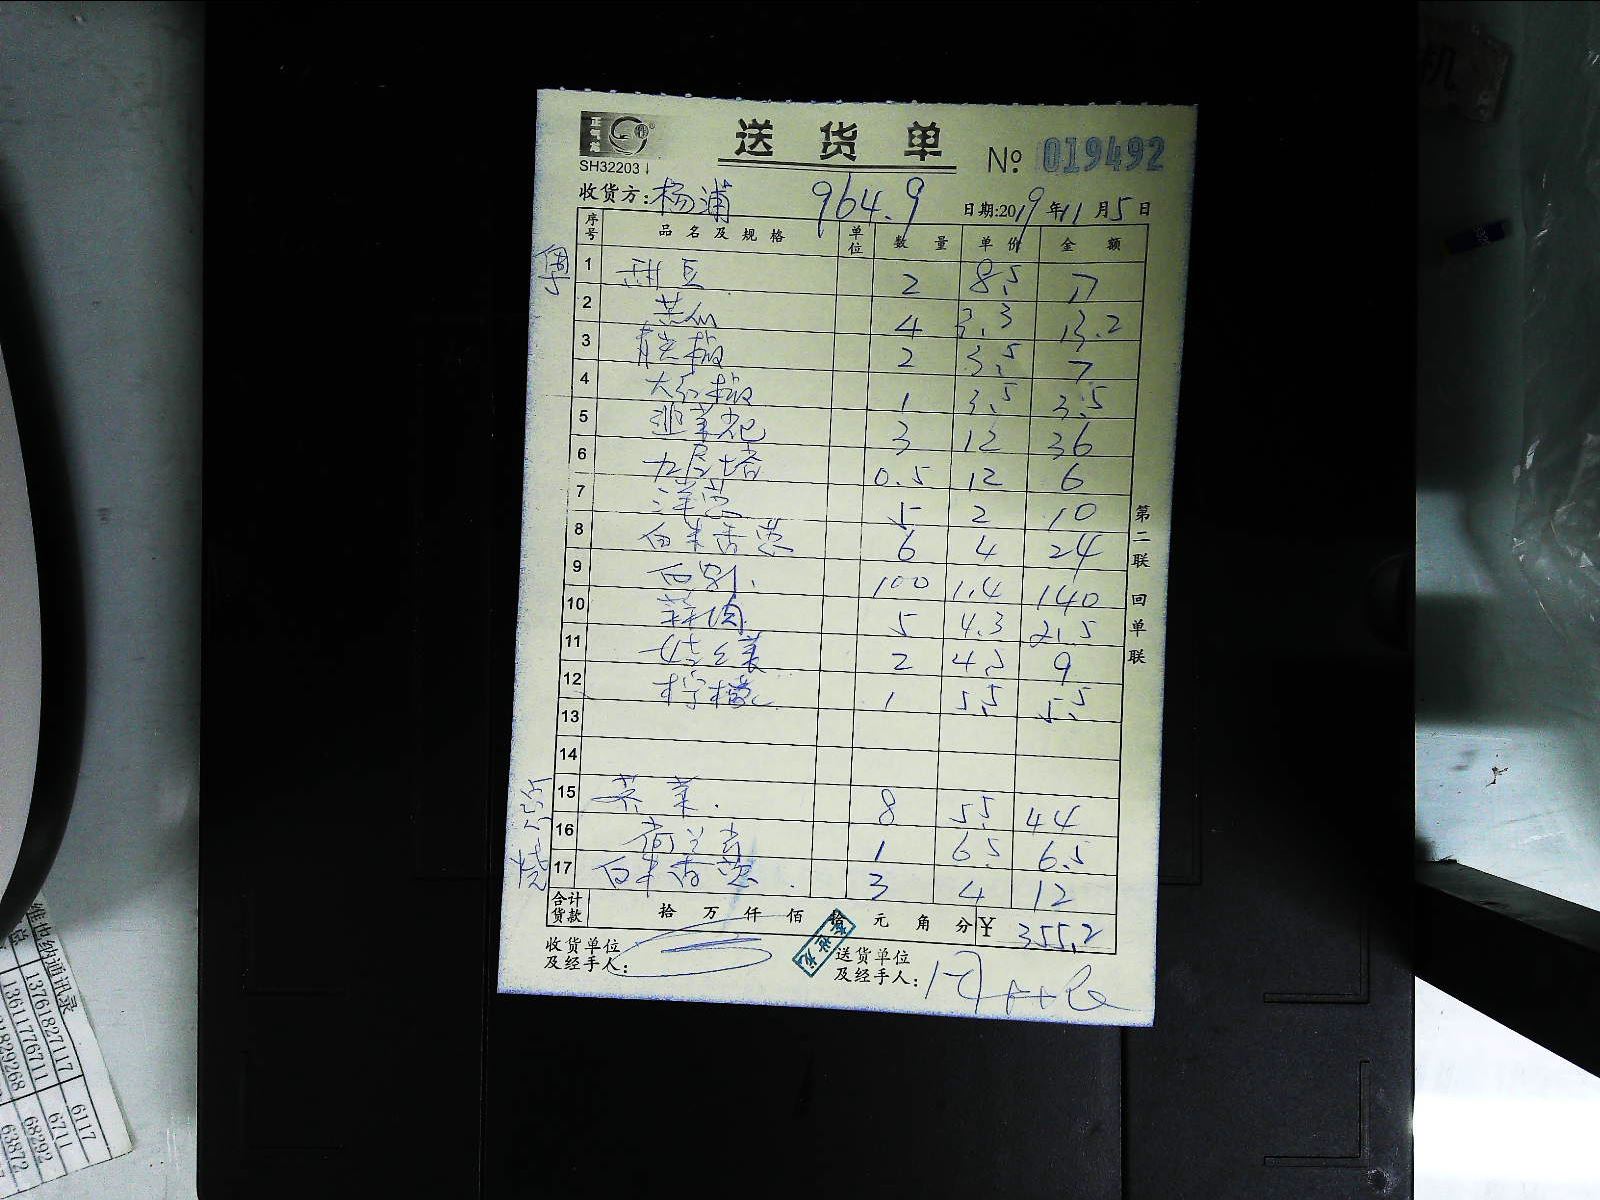 正气
SH32203
送货单
№ 019492
收货方:杨浦 964.9 日期:2019年11月5日
序号 品名及规格 单位 数量 单价 金额
粤
1 甜豆 2 8.5 17
2 苦瓜 4 3.3 13.2
3 青尖椒 2 3.5 7
4 大红椒 1 3.5 3.5
5 韭菜花 3 12 36
6 九层塔 0.5 12 6
7 洋葱 5 2 10
8 白米香葱 6 4 24
9 西芹 100 1.4 140
10 蒜肉 5 4.3 21.5
11 2 4.5 9
12 柠檬 1 5.5 5.5
13
14
烧
15 芥菜 8 5.5 44
16 荷兰芹 1 6.5 6.5
17 白米香葱 3 4 12
合计货款 拾万仟佰拾元角分 ¥ 355.2
收货单位及经手人:
送货单位及经手人:
第二联 回单联
维他纳通讯录
13761827117 6117
13611776711 6711
68292
63872
机